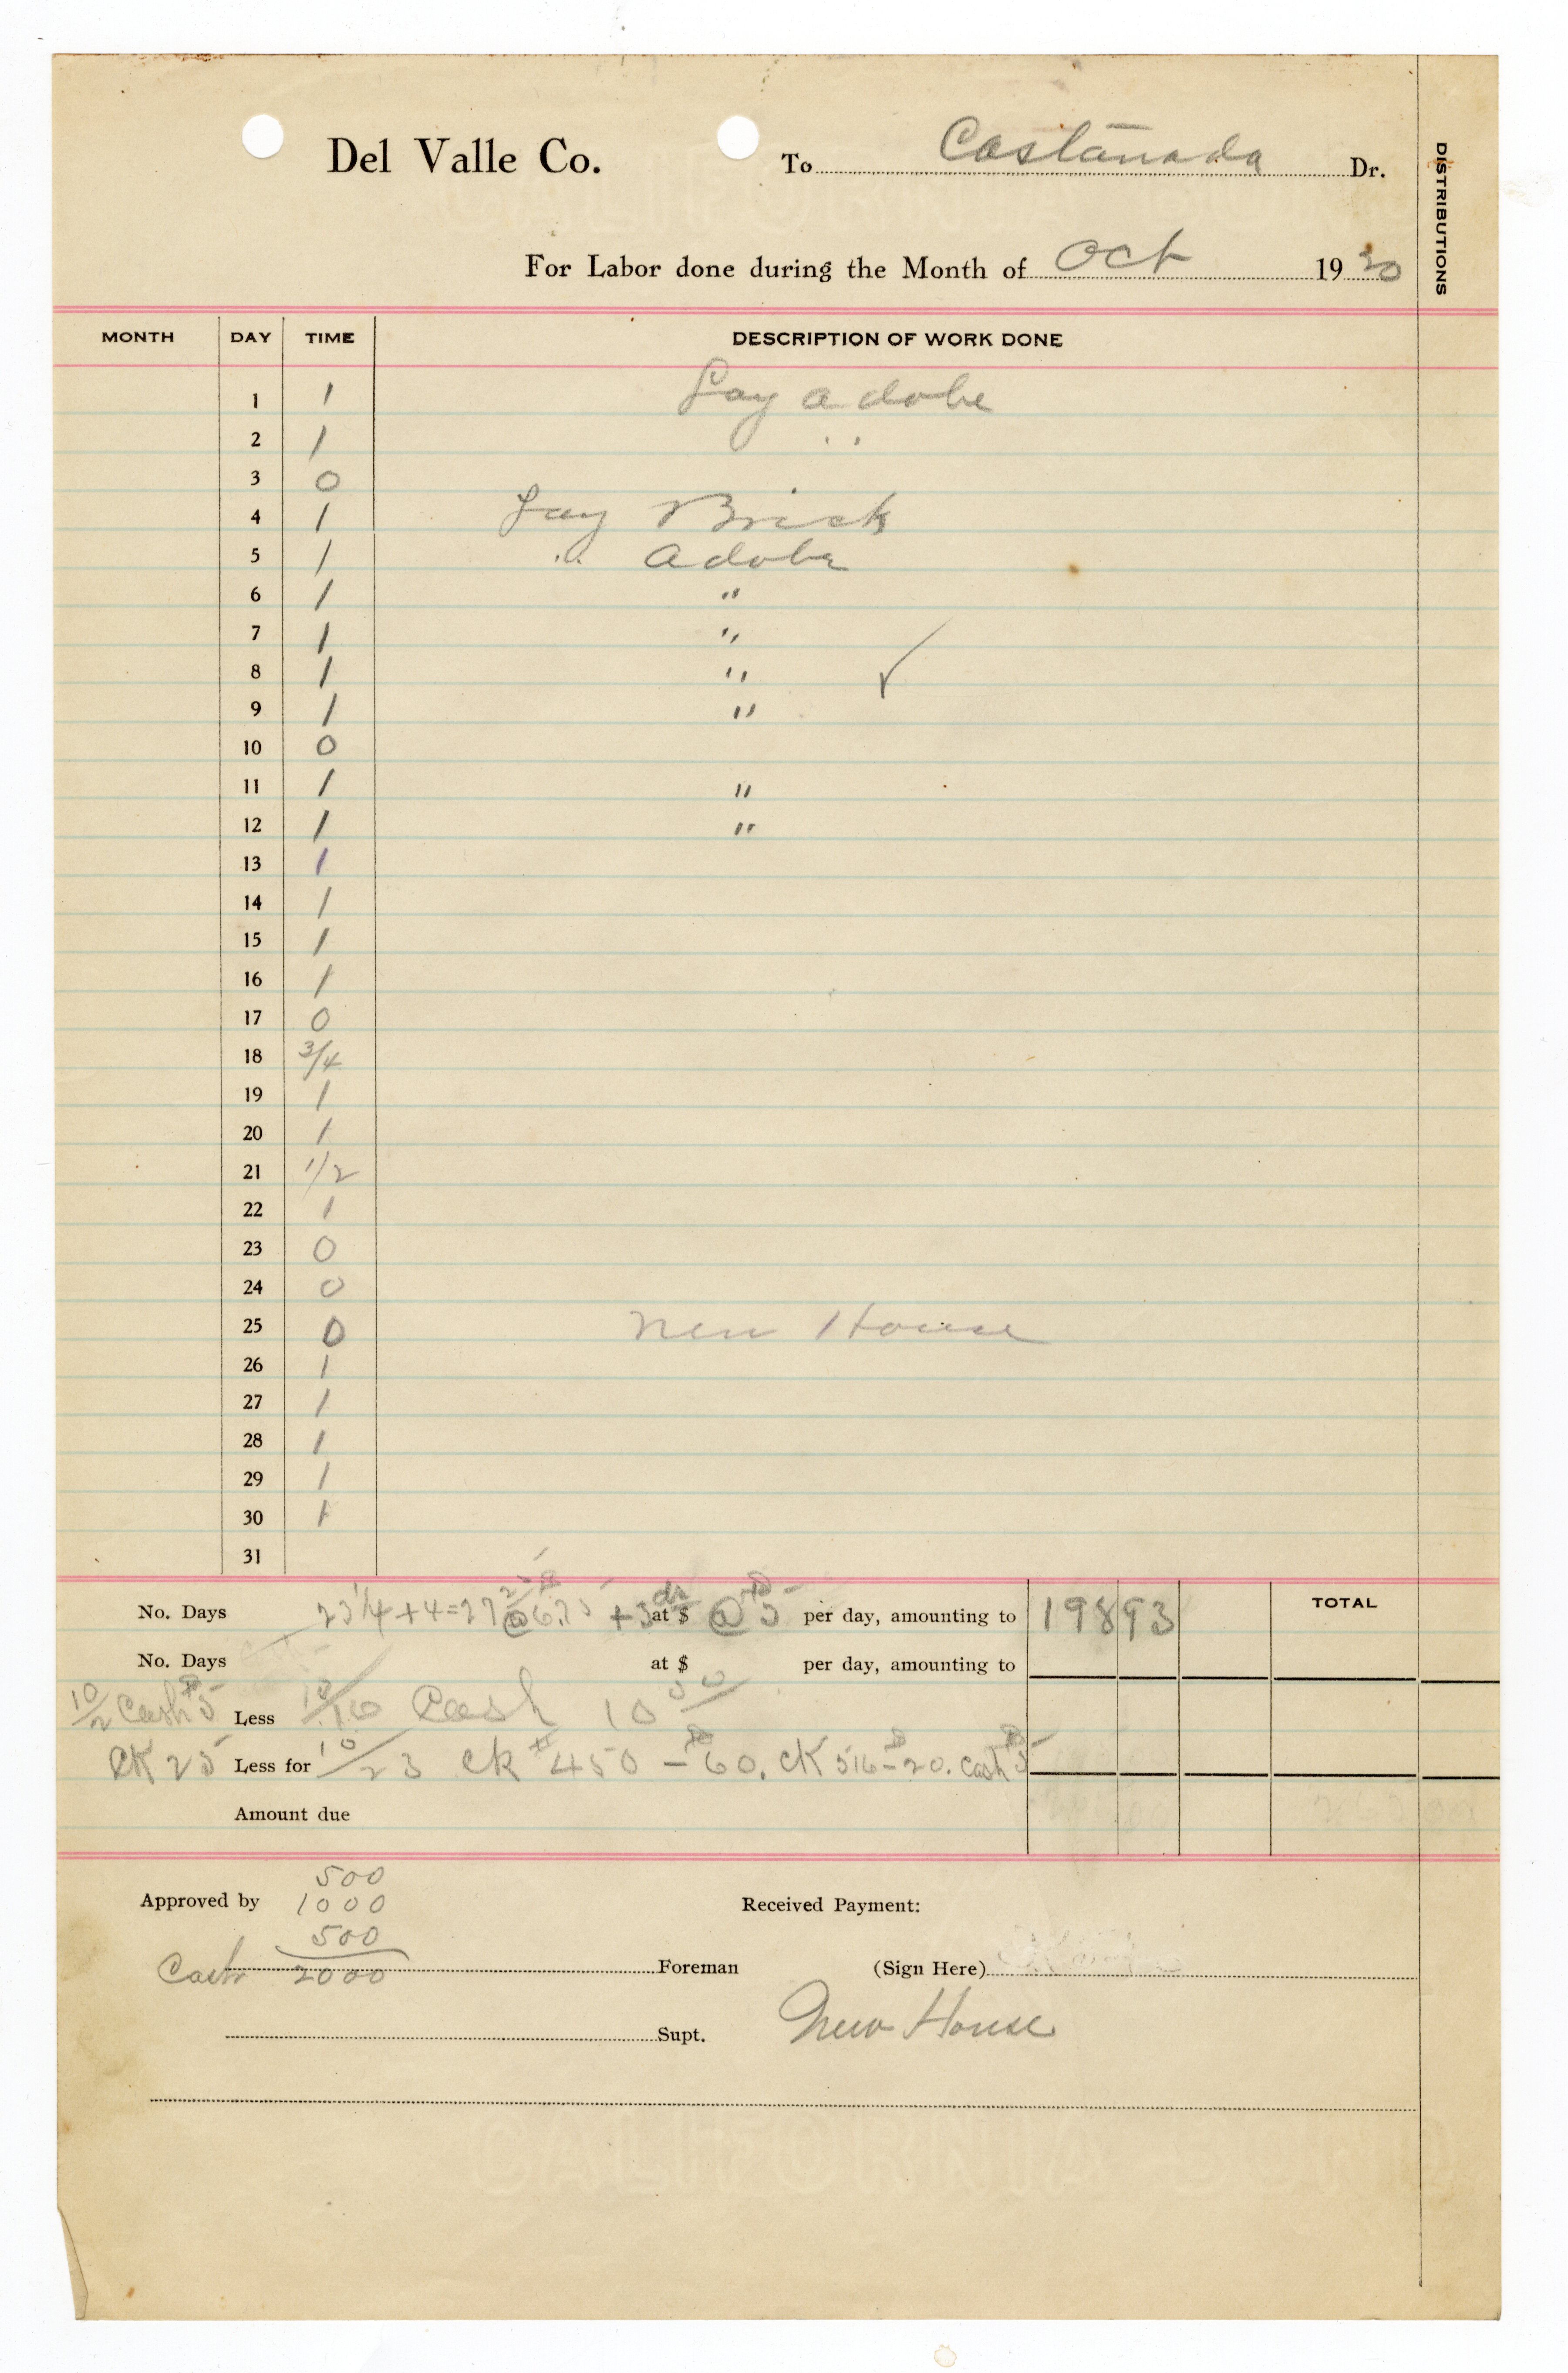 Del Valle Co. To Castanada Dr.
DISTRIBUTIONS
For Labor done during the Month of Oct 1920
MONTH DAY TIME DESCRIPTION OF WORK DONE
1 1 Lay adobe
2 1 "
3 0
4 1 Lay Brick
5 1 " adobe
6 1 "
7 1 "
8 1 " ✓
9 1 "
10 0
11 1 "
12 1 "
13 1
14 1
15 1
16 1
17 0
18 3/4
19 1
20 1
21 1/2
22 1
23 0
24 0
25 0 New House
26 1
27 1
28 1
29 1
30 1
31
TOTAL
No. Days 23 1/4 + 4 = 27 @ 6.75 + 3 at $ @ $5 per day, amounting to 198 93
No. Days at $ per day, amounting to
10/2 Cash $5 Less 10/16 Cash 10 00
CK 25 Less for 10/23 CK # 450 - $60. CK 516 - $20. Cash $5
Amount due
500
Approved by 1000 Received Payment:
500
Cash 2000 Foreman (Sign Here)
Supt. New House